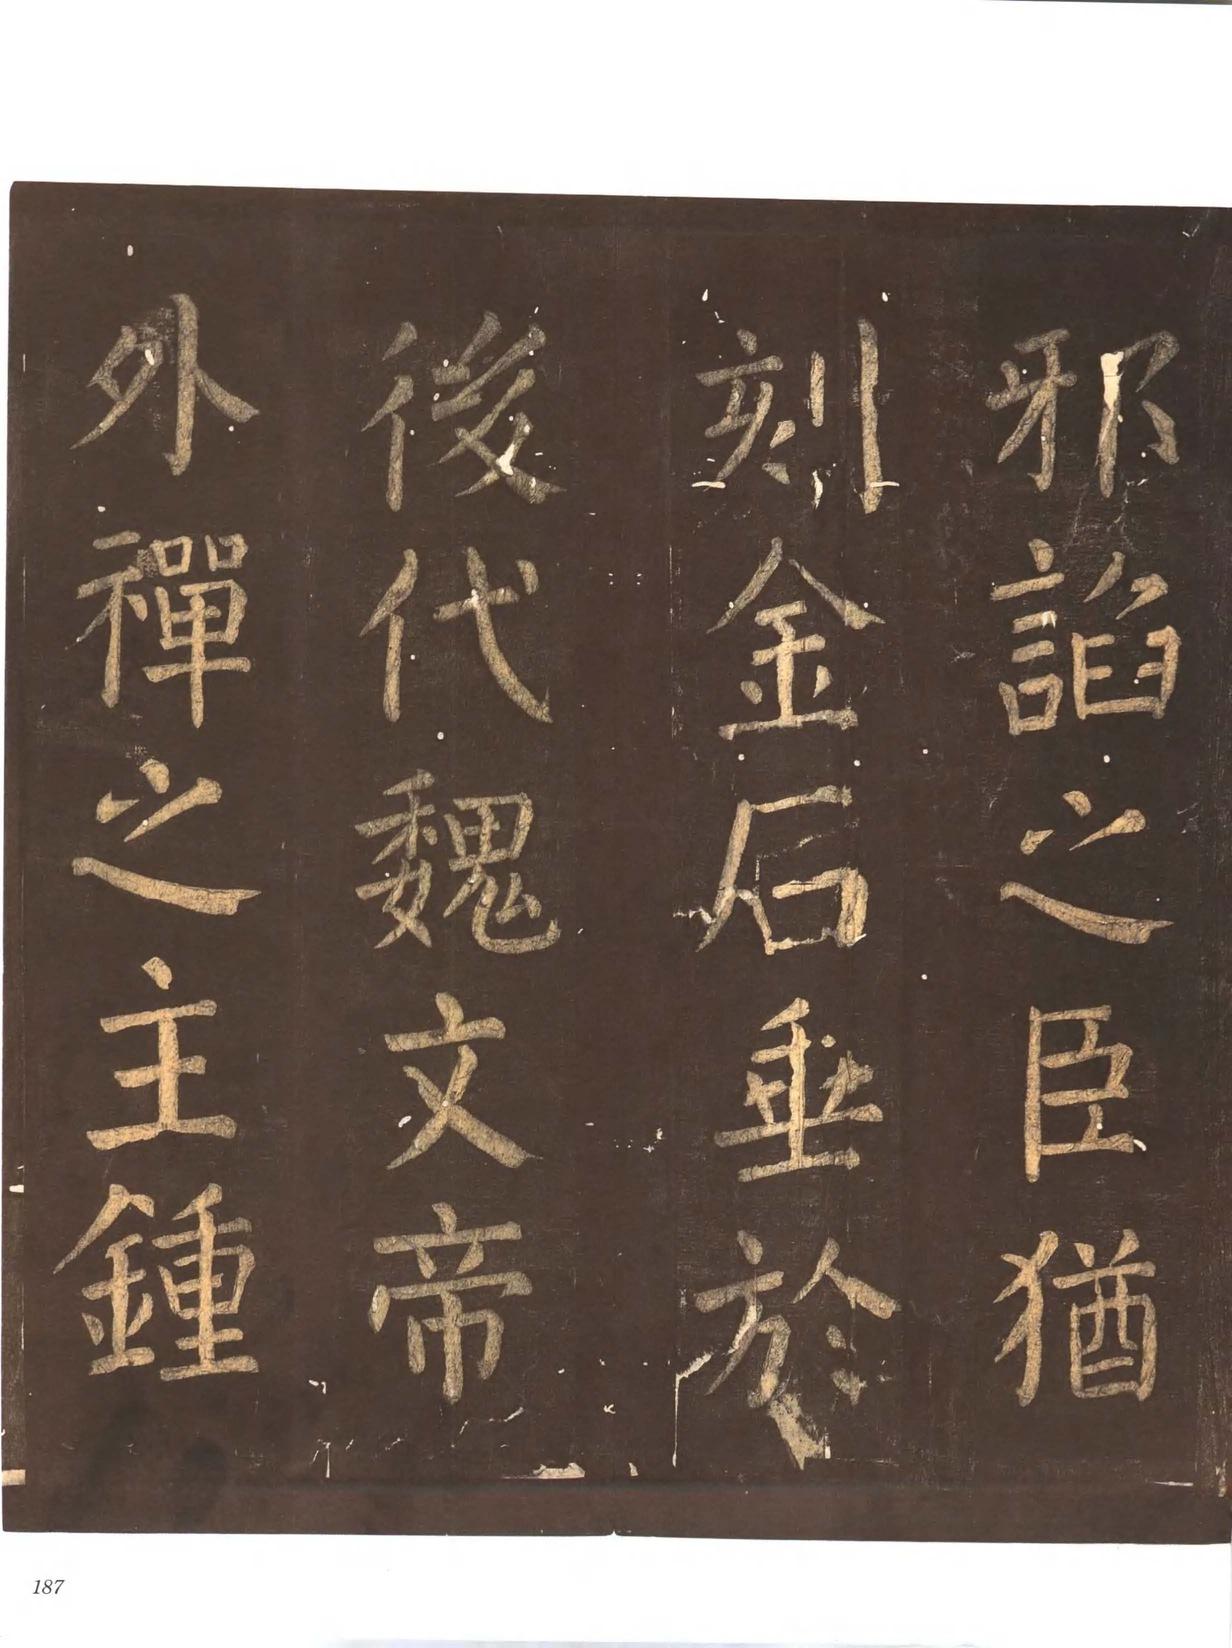 邪諂之臣猶
刻金石垂於
後代魏文帝
外禪之主鍾
187